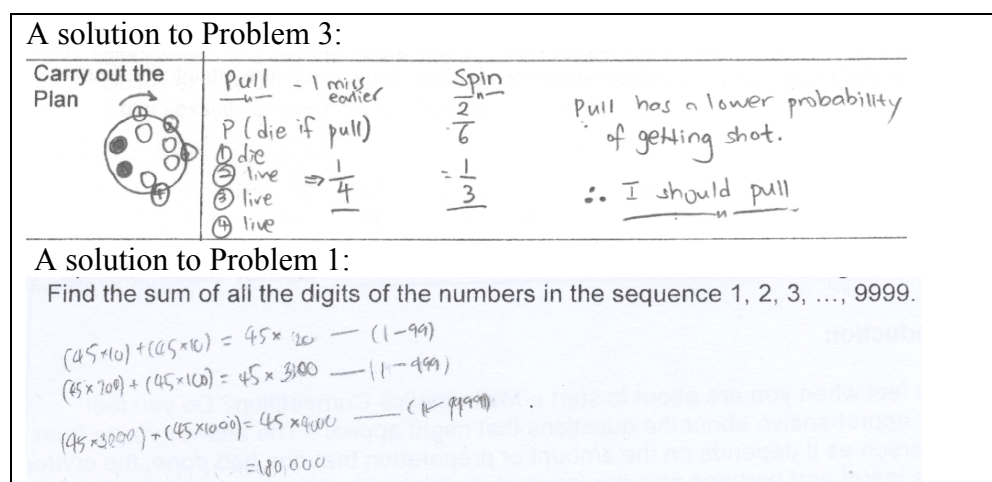 A solution to Problem 3:
Carry out the Plan
Pull - 1 miss earlier
P (die if pull)
① die
② live ⇒ 1/4
③ live
④ live
① ② ③ ④
Spin
2/6
= 1/3
Pull has a lower probability
of getting shot.
∴ I should pull
A solution to Problem 1:
Find the sum of all the digits of the numbers in the sequence 1, 2, 3, ..., 9999.
(45×10) + (45×10) = 45 × 20 — (1-99)
(45×200) + (45×100) = 45 × 300 — (1-999)
(45×3000) + (45×1000) = 45 × 4000 — (1-9999)
= 180,000